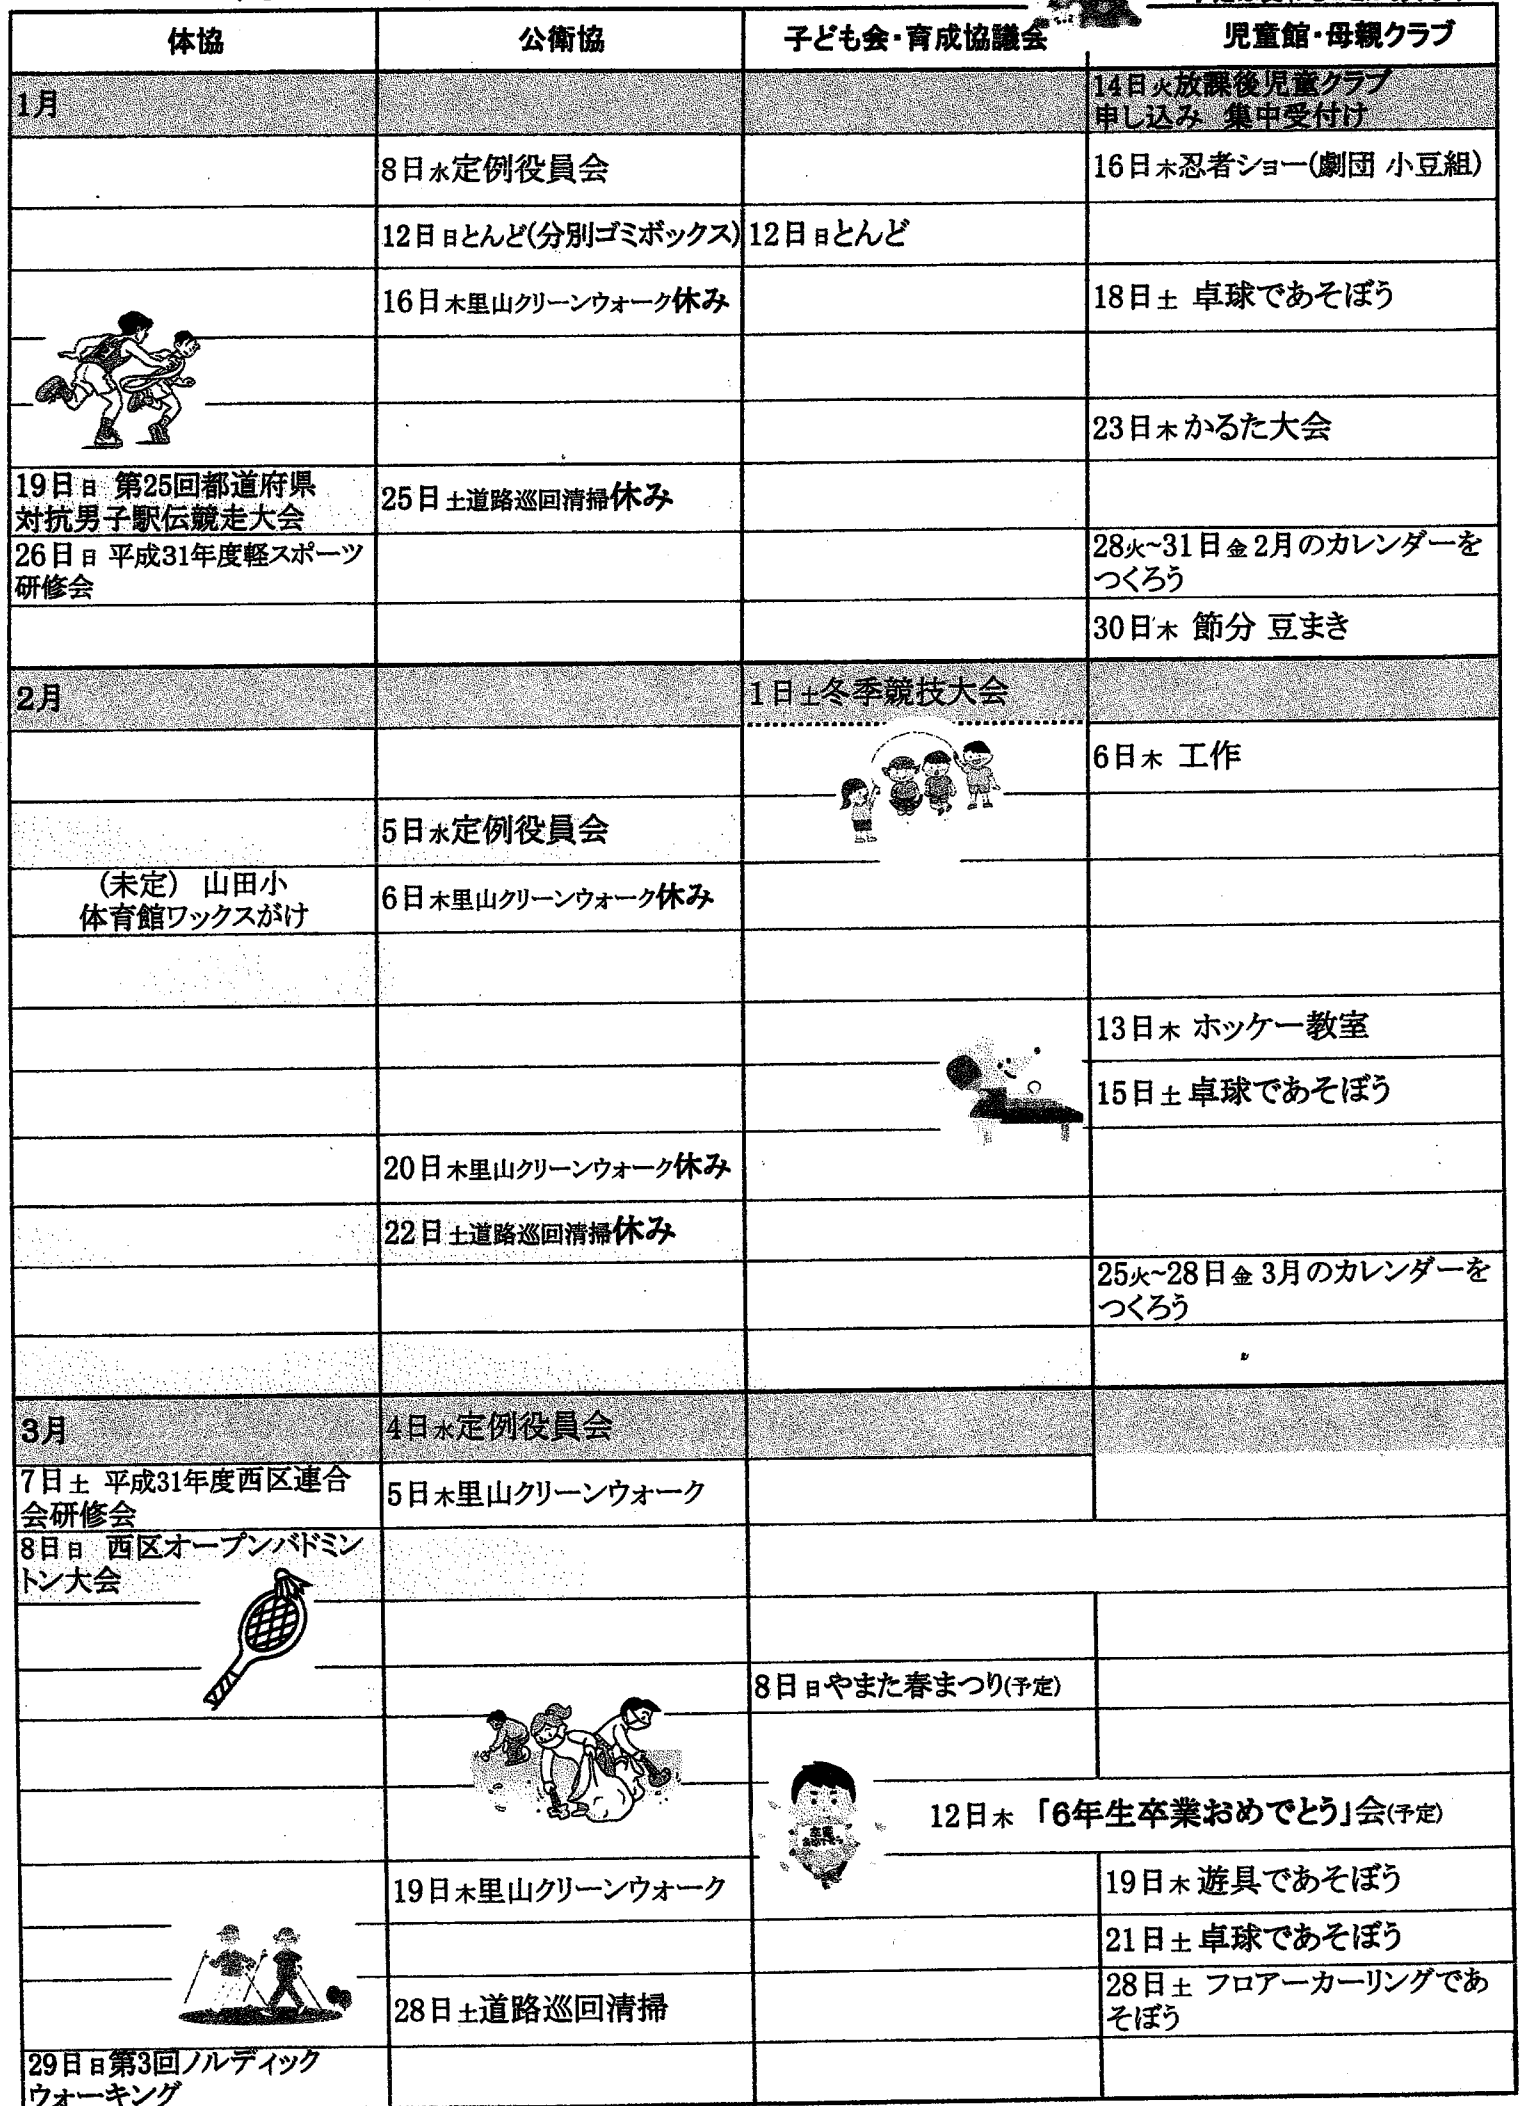 体協 公衛協 子ども会・育成協議会 児童館・母親クラブ
1月 14日火放課後児童クラブ
申し込み 集中受付け
8日水定例役員会 16日木忍者ショー(劇団 小豆組)
12日日とんど(分別ゴミボックス) 12日日とんど
16日木里山クリーンウォーク休み 18日土 卓球であそぼう
23日木かるた大会
19日日 第25回都道府県
対抗男子駅伝競走大会
25日土道路巡回清掃休み
26日日 平成31年度軽スポーツ
研修会
28火~31日金2月のカレンダーを
つくろう
30日木 節分 豆まき
2月 1日土冬季競技大会
6日木 工作
5日水定例役員会
(未定) 山田小
体育館ワックスがけ
6日木里山クリーンウォーク休み
13日木 ホッケー教室
15日土卓球であそぼう
20日木里山クリーンウォーク休み
22日土道路巡回清掃休み
25火~28日金 3月のカレンダーを
つくろう
3月 4日水定例役員会
7日土 平成31年度西区連合
会研修会
5日木里山クリーンウォーク
8日日 西区オープンバドミン
トン大会
8日日やまた春まつり(予定)
12日木 「6年生卒業おめでとう」会(予定)
19日木里山クリーンウォーク 19日木 遊具であそぼう
21日土卓球であそぼう
28日土道路巡回清掃 28日土 フロアーカーリングであ
そぼう
29日日第3回ノルディック
ウォーキング